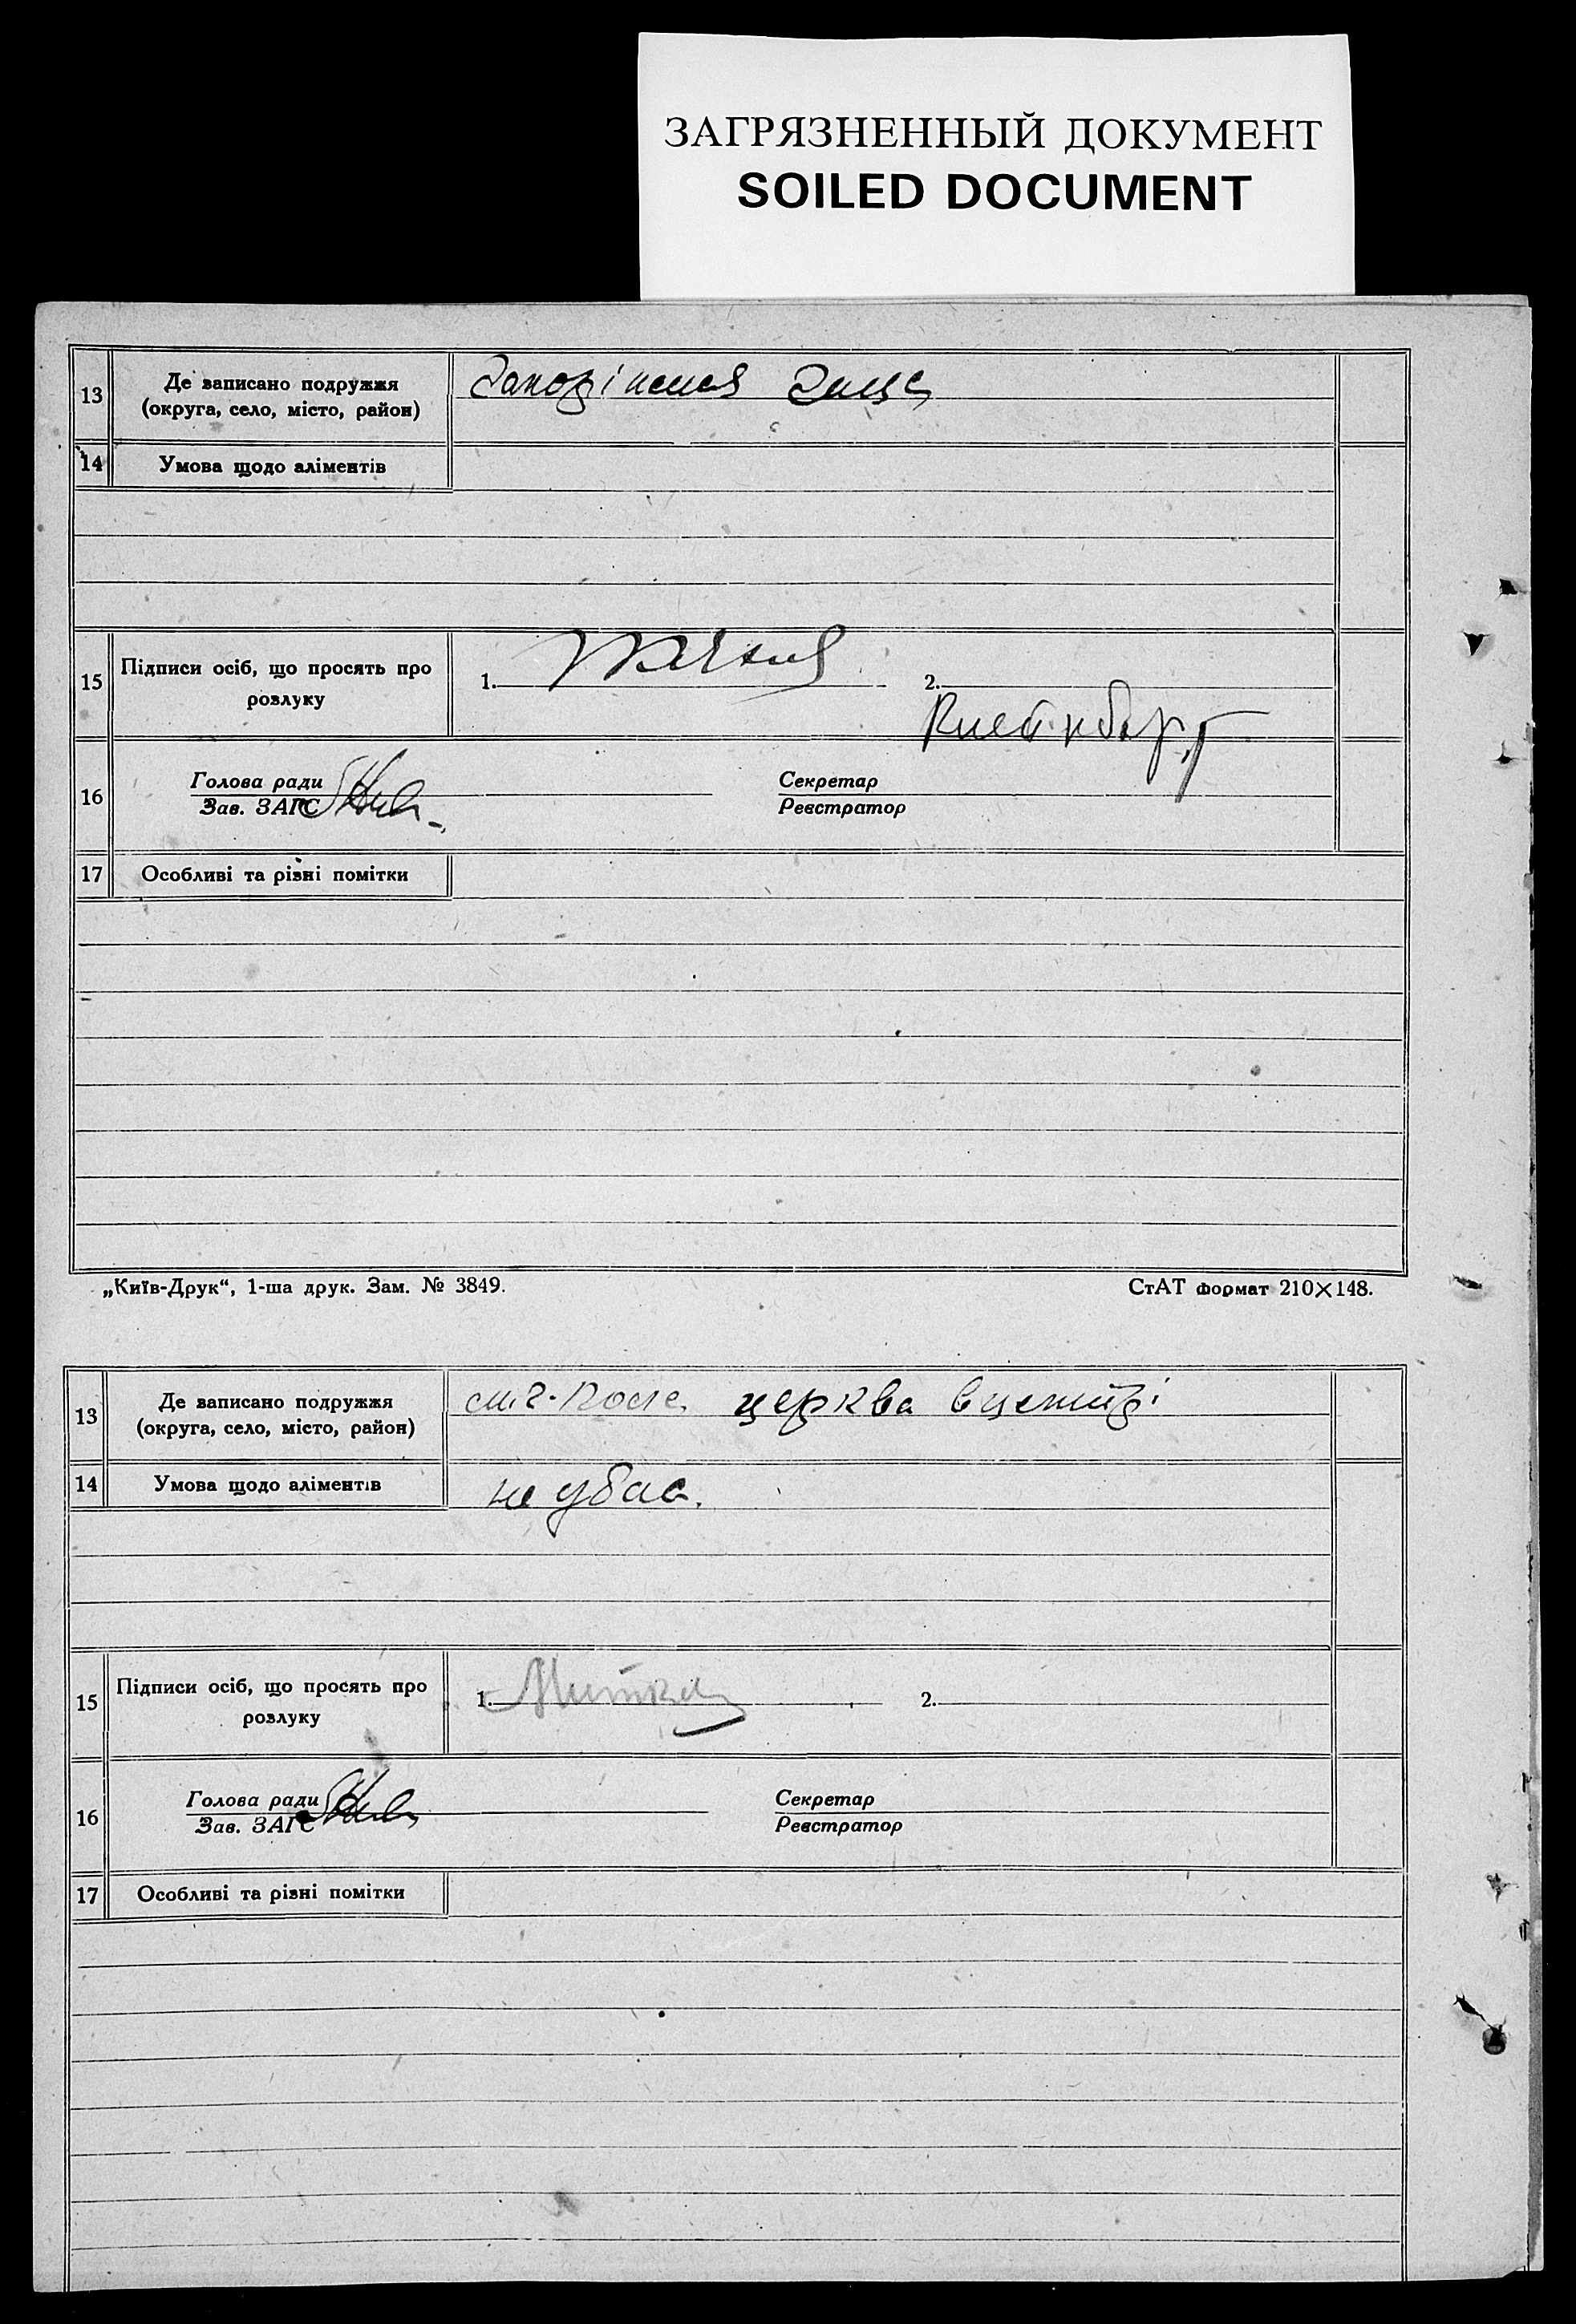 ЗАГРЯЗНЕННЫЙ ДОКУМЕНТ
SOILED DOCUMENT
13
Де записано подружжя
(округа, село, місто, район)
14
Умова щодо аліментів
15
Підписи осіб, що просять про
розлуку
1.
2.
Клейнборт
16
Голова ради
Зав. ЗАГС
Секретар
Реєстратор
17
Особливі та різні помітки
„Київ-Друк“, 1-ша друк. Зам. № 3849.
СтАТ формат 210×148.
13
Де записано подружжя
(округа, село, місто, район)
церква в центрі
14
Умова щодо аліментів
не
15
Підписи осіб, що просять про
розлуку
1.
2.
16
Голова ради
Зав. ЗАГС
Секретар
Реєстратор
17
Особливі та різні помітки